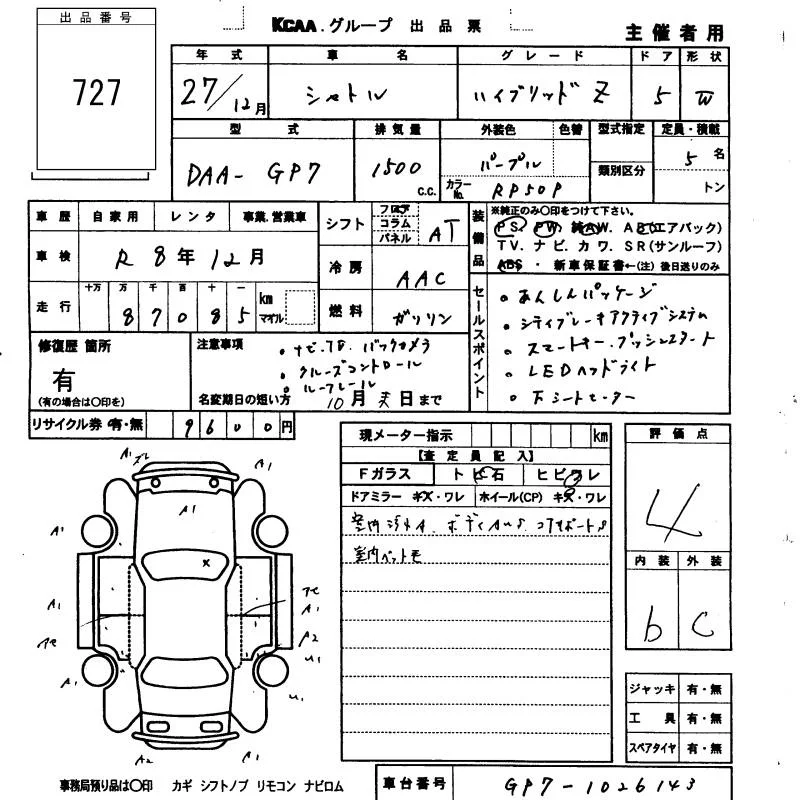 出品番号
727
KCAA.グループ 出品票
主催者用
年式 車名 グレード ドア 形状
27/12月 シャトル ハイブリッドZ 5 W
型式 排気量 外装色 色替 型式指定 定員・積載
DAA-GP7 1500 c.c. パープル 類別区分 5名
カラーNo. RP50P トン
車歴 自家用 レンタ 事業.営業車
シフト フロア コラム パネル AT
装備品 ※純正のみ〇印をつけて下さい。
PS. PW. 純AW. AB(エアバック)
TV. ナビ. カワ. SR(サンルーフ)
ABS・新車保証書←(注)後日送りのみ
車検 R8年12月
冷房 AAC
走行 十万 万 千 百 十 一 km マイル
87085
燃料 ガソリン
セールスポイント
・あんしんパッケージ
・シティブレーキアクティブシステム
・スマートキー.プッシュスタート
・LEDヘッドライト
・下シートヒーター
修復歴 箇所
有
(有の場合は〇印を)
注意事項
・ナビ.TV.バックカメラ
・クルーズコントロール
・ルーフレール
名変期日の短い方 10月末日まで
リサイクル券 有・無 9600円
現メーター指示 km
【査定員記入】
Fガラス トビ石 ヒビワレ
ドアミラー キズ・ワレ ホイール(CP) キズ・ワレ
室内ペットモ
評価点
4
内装 外装
b C
A1 ズレ A1
A1
A1 A1
X
A1 アセ
A1
アセ A2
U1
A1 U1
A2 A1
ジャッキ 有・無
工具 有・無
スペアタイヤ 有・無
事務局預り品は〇印 カギ シフトノブ リモコン ナビロム
車台番号 GP7-1026143